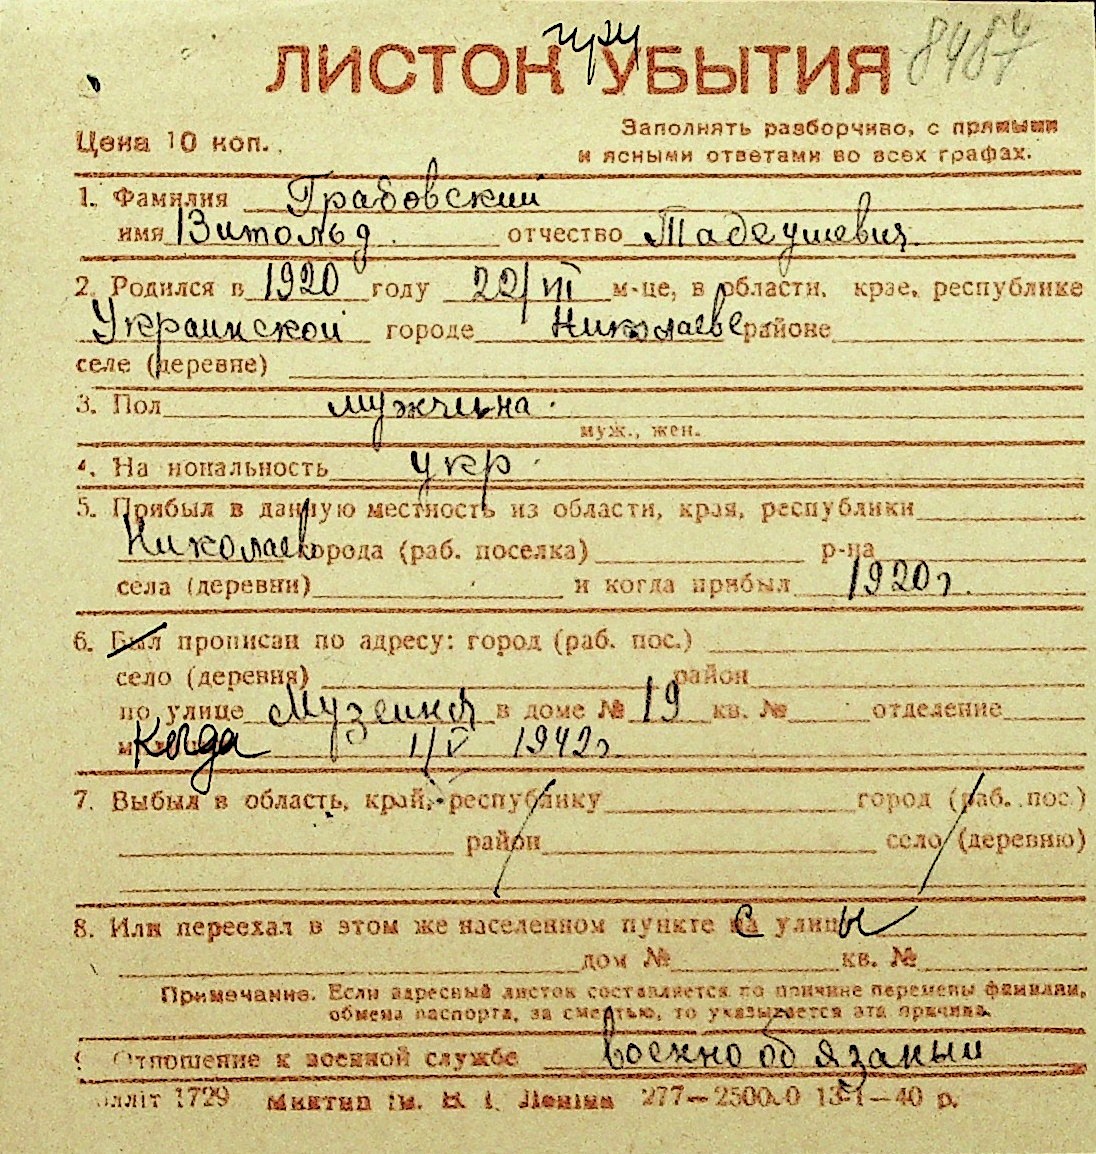 ЛИСТОК УБЫТИЯ
Цена 10 коп.
Заполнять разборчиво, с прямыми
и ясными ответами во всех графах.
1. Фамилия Грабовский
имя Витольд отчество Тадеушевич
2. Родился в 1920 году 22/VII м-це, в области, крае, республике
Украинской городе Николаеве районе
селе (деревне)
3. Пол мужчина
муж., жен.
4. На иональность укр
5. Прибыл в данную местность из области, края, республики
Николаев города (раб. поселка) р-на
села (деревни) и когда прибыл 1920 г.
6. Был прописан по адресу: город (раб. пос.)
село (деревня) район
по улице Музейная в доме № 19 кв. № отделение
Когда 1/V 1942 г
7. Выбыл в область, край, республику город (раб. пос.)
район село (деревню)
8. Или переехал в этом же населенном пункте с улицы
дом № кв. №
Примечание. Если адресный листок составляется по причине перемены фамилии,
обмена паспорта, за смертью, то указывается эта причина.
9 Отношение к военной службе военнообязаный
лліт 1729 Миктип ім. В. І. Леніна 13-I-40 р.